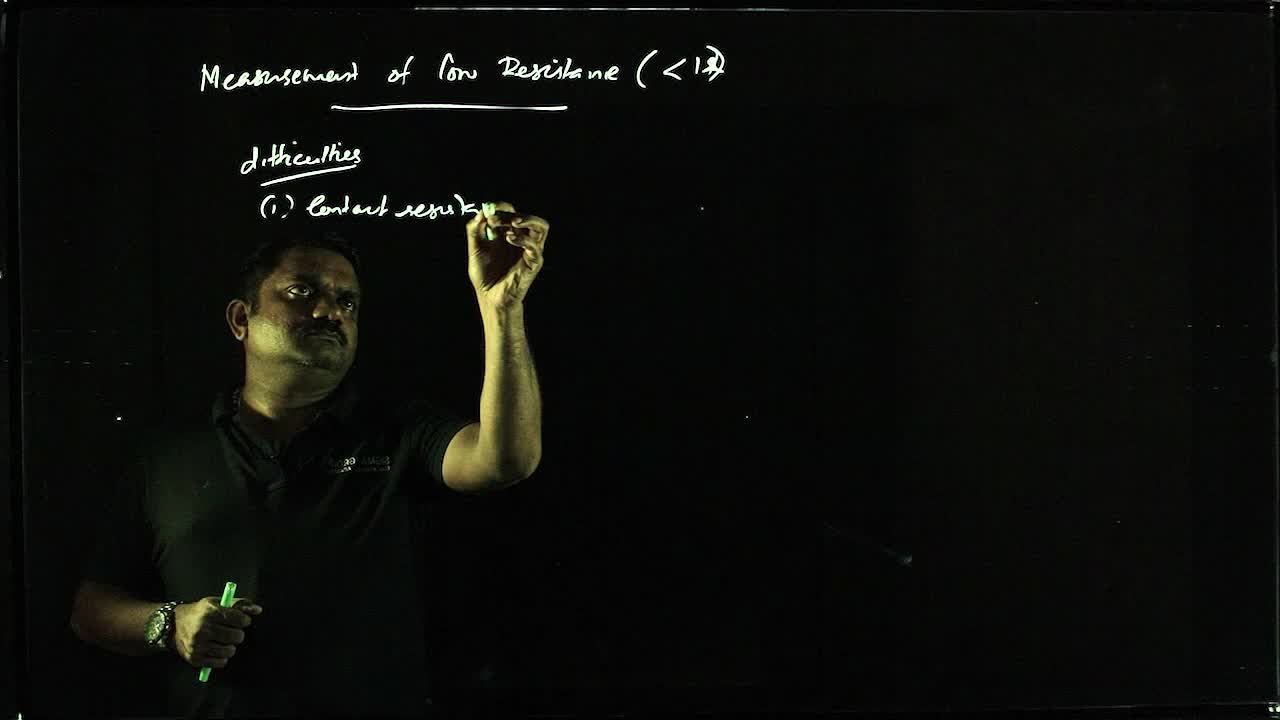 Measurement of low Resistance (<1Ω)
difficulties
(1) Contact resista